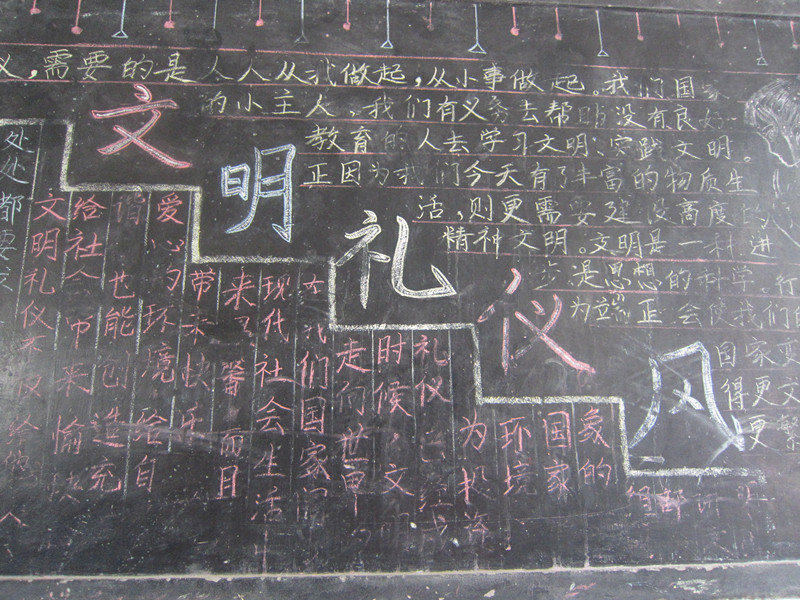 义,需要的是人人从我做起,从小事做起。我们国家
的小主人,我们有义务去帮助没有良好
教育的人去学习文明、实践文明。
正因为我们今天有了丰富的物质生
活,则更需要建设高度的
精神文明。文明是一种进
步是思想的科学,行
为端正会使我们的
国家变
得更文
更繁
文明礼仪风
处处都要求
文明礼仪不仅给他人
给社会带来愉快
谐也能创造充
爱心的环境给自
带来快乐
来了 而且
现代社会生活中
我们国家
走向世界
时候,文明
礼仪已经成
为投资
环境
国家
象的